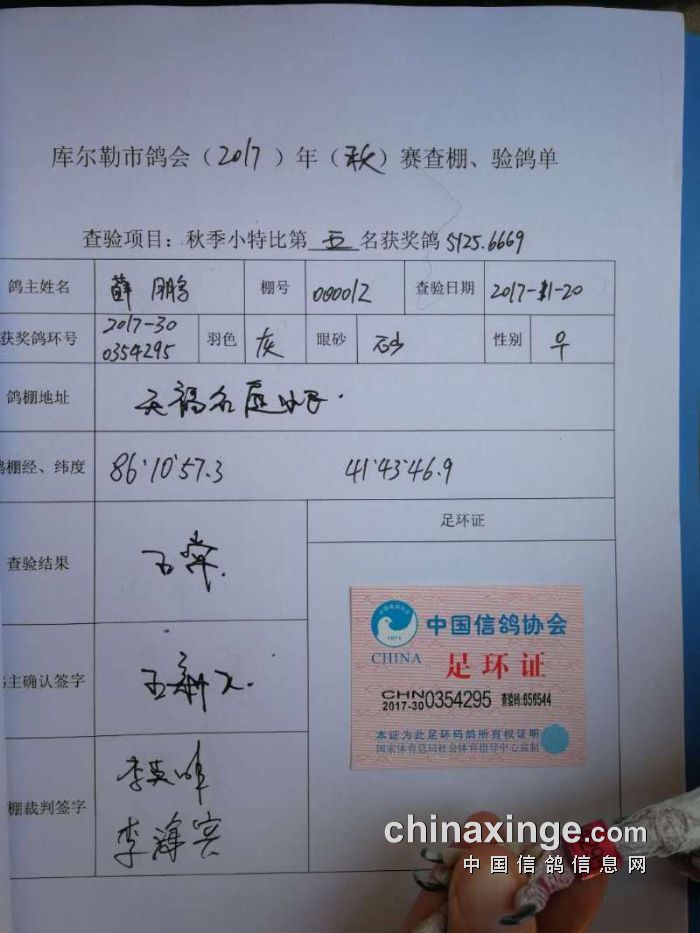 库尔勒市鸽会（2017）年（秋）赛查棚、验鸽单
查验项目：秋季小特比第 五 名获奖鸽 5125.6669
鸽主姓名 薛鹏 棚号 000012 查验日期 2017-11-20
获奖鸽环号 2017-30 0354295 羽色 灰 眼砂 砂 性别 ♀
鸽棚地址 天福名庭小区.
鸽棚经、纬度 86°10′57.3 41°43′46.9
足环证
查验结果 正常.
主确认签字
棚裁判签字
李英
李海宾
中国信鸽协会
CHINA
足环证
CHN
2017-30 0354295 查验码:656544
本证为此足环码鸽所有权证明
国家体育总局社会体育指导中心监制
chinaxinge.com
中国信鸽信息网